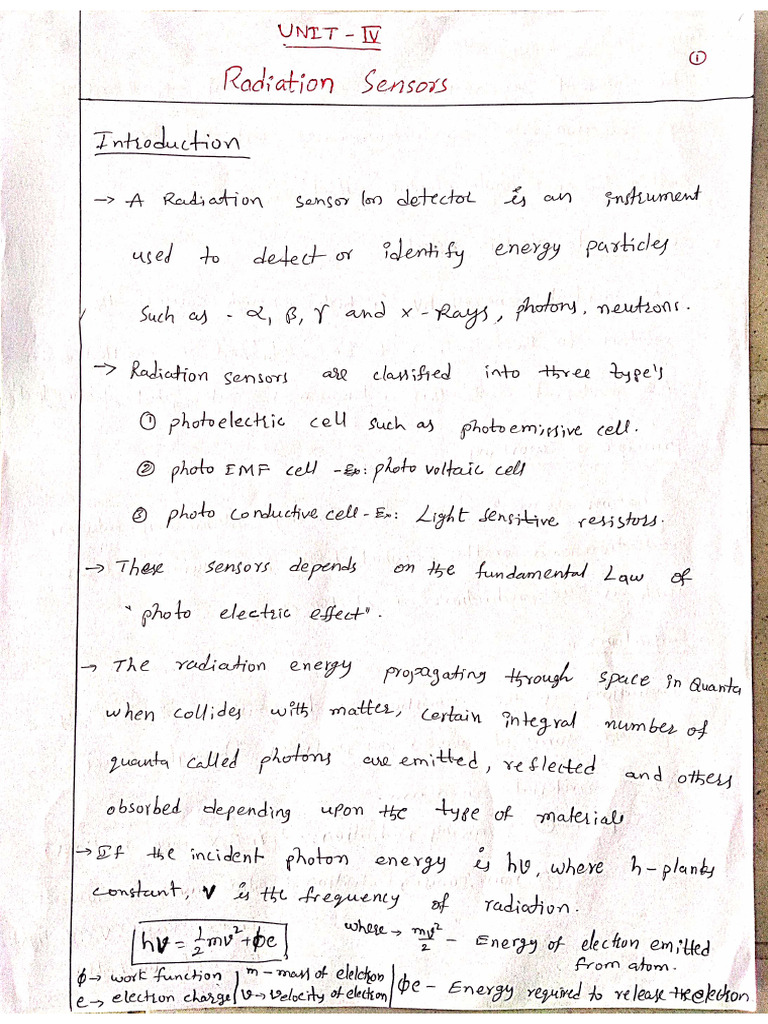 UNIT - IV
①
Radiation Sensors
Introduction
→ A Radiation sensor (or) detector is an instrument
used to detect or identify energy particles
Such as - α, β, γ and x - Rays, photons, neutrons.
→ Radiation sensors are classified into three type's
① photoelectric cell such as photoemissive cell.
② photo EMF cell - Ex: photo voltaic cell
③ photo conductive cell - Ex: Light sensitive resistors.
→ These sensors depends on the fundamental Law of
"photo electric effect".
→ The radiation energy propagating through space in Quanta
when collides with matter, certain integral number of
quanta called photons are emitted, reflected and others
absorbed depending upon the type of materials
→ If the incident photon energy is hν, where h - planks
constant, ν is the frequency of radiation.
hν = 1/2 mv² + ϕe where → mv²/2 - Energy of electron emitted
from atom.
ϕ → work function | m - mass of elelctron | ϕe - Energy required to release the electron
e → electron charge | v → velocity of electron